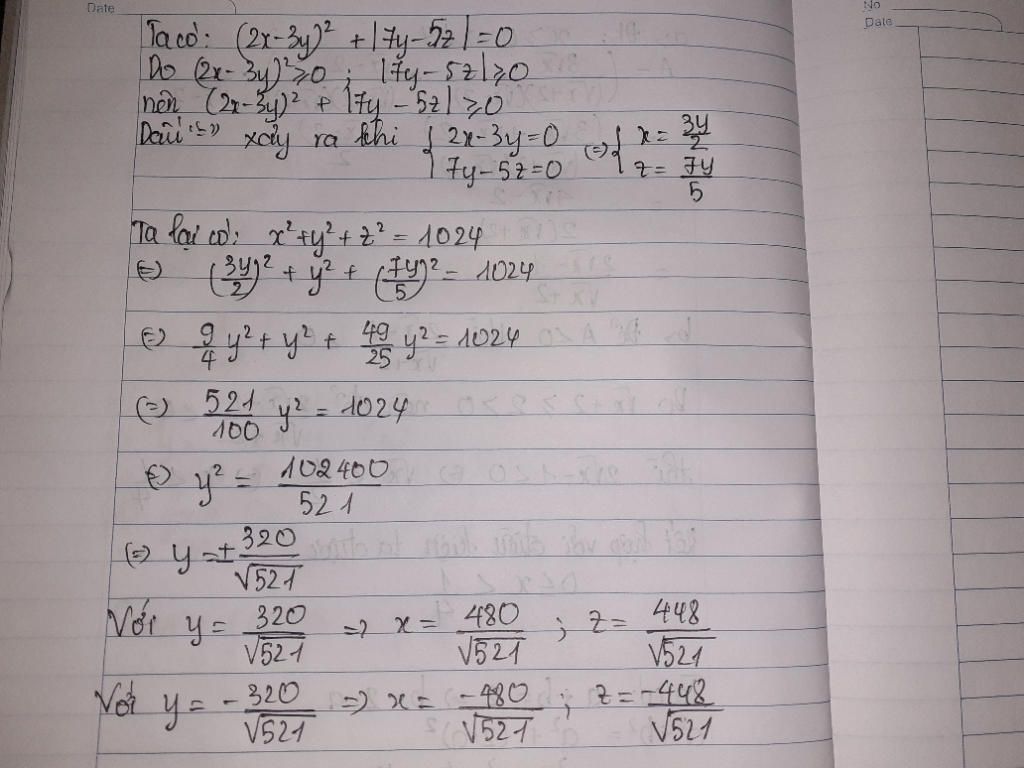 Date
No
Date
Ta có: (2x-3y)² + |7y-5z| = 0
Do (2x-3y)² ≥ 0 ; |7y-5z| ≥ 0
nên (2x-3y)² + |7y-5z| ≥ 0
Dấu "=" xảy ra khi { 2x-3y=0 ; 7y-5z=0 (=) { x = 3y/2 ; z = 7y/5
Ta lại có: x²+y²+z² = 1024
(=) (3y/2)² + y² + (7y/5)² = 1024
(=) 9/4 y² + y² + 49/25 y² = 1024
(=) 521/100 y² = 1024
(=) y² = 102400/521
(=) y = ± 320/√521
Với y = 320/√521 => x = 480/√521 ; z = 448/√521
Với y = -320/√521 => x = -480/√521 ; z = -448/√521